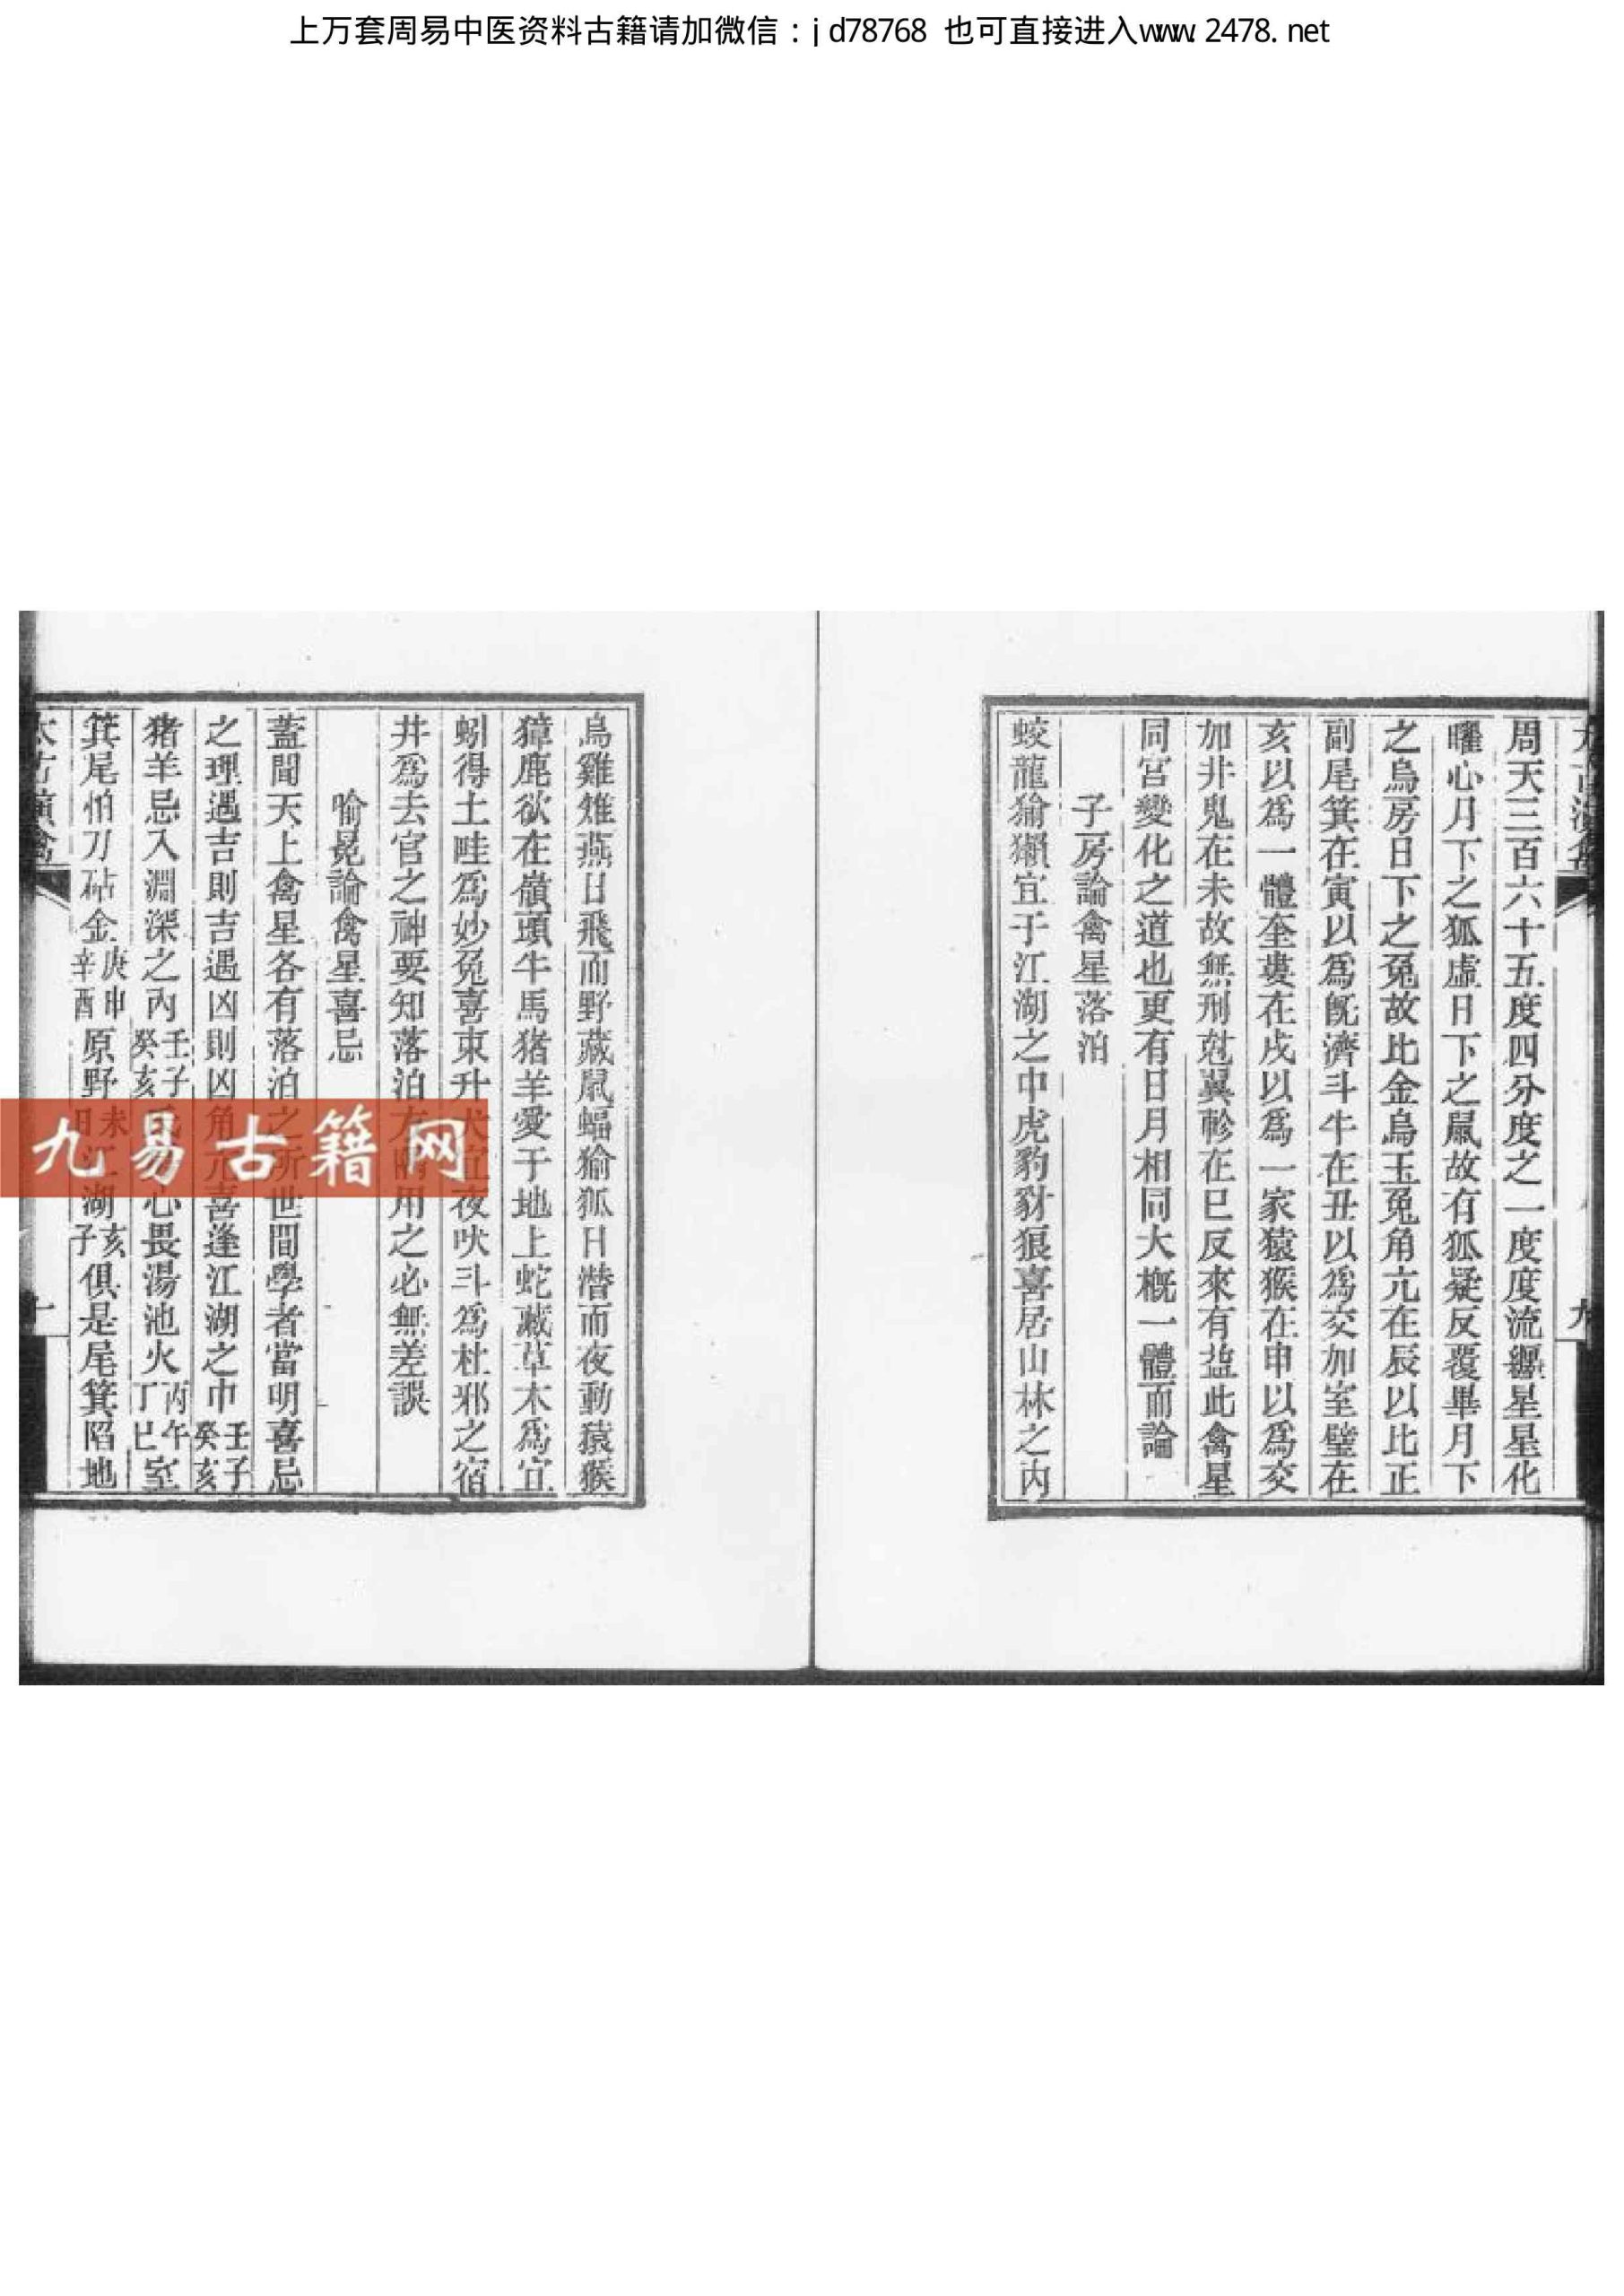 上万套周易中医资料古籍请加微信：jd78768 也可直接进入www.2478.net
九
周天三百六十五度四分度之一度度流纒星星化
曜心月下之狐虛日下之鼠故有狐疑反覆畢月下
之烏房日下之兔故比金烏玉兔角亢在辰以比正
副尾箕在寅以爲旣濟斗牛在丑以爲交加室璧在
亥以爲一體奎婁在戌以爲一家猿猴在申以爲交
加井鬼在未故無刑尅翼軫在巳反來有益此禽星
同宮變化之道也更有日月相同大槪一體而論
子房論禽星落泊
蛟龍㺄獺宜于江湖之中虎豹豺狼喜居山林之內
烏雞雉燕日飛而野藏鼠蝠㺄狐日潛而夜動猿猴
獐鹿欲在嶺頭牛馬猪羊愛于地上蛇藏草木爲宜
蚓得土畦爲妙兔喜東升犬宜夜吠斗爲杜邪之宿
井爲去官之神要知落泊用之必無差誤
喻晃論禽星喜忌
蓋聞天上禽星各有落泊之所世間學者當明喜忌
之理遇吉則吉遇凶則凶角亢喜逢江湖之中壬子癸亥
猪羊忌入淵深之內壬子癸亥心畏湯池火丙午丁巳室
箕尾怕刀砧金庚申辛酉原野未江湖亥子俱是尾箕陷地
太古演禽
十
九易古籍网